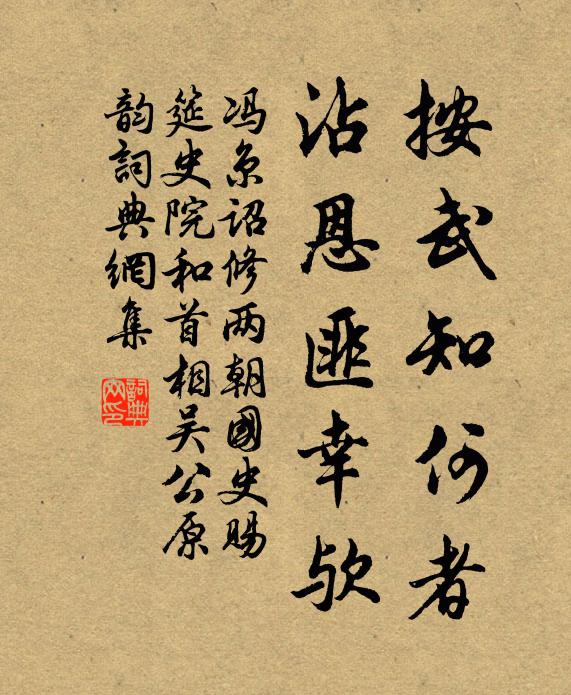 按武知何者
沾恩匪幸欤
冯京诏修两朝國史赐
筵史院和首相吴公原
韵詞典網集
詞典